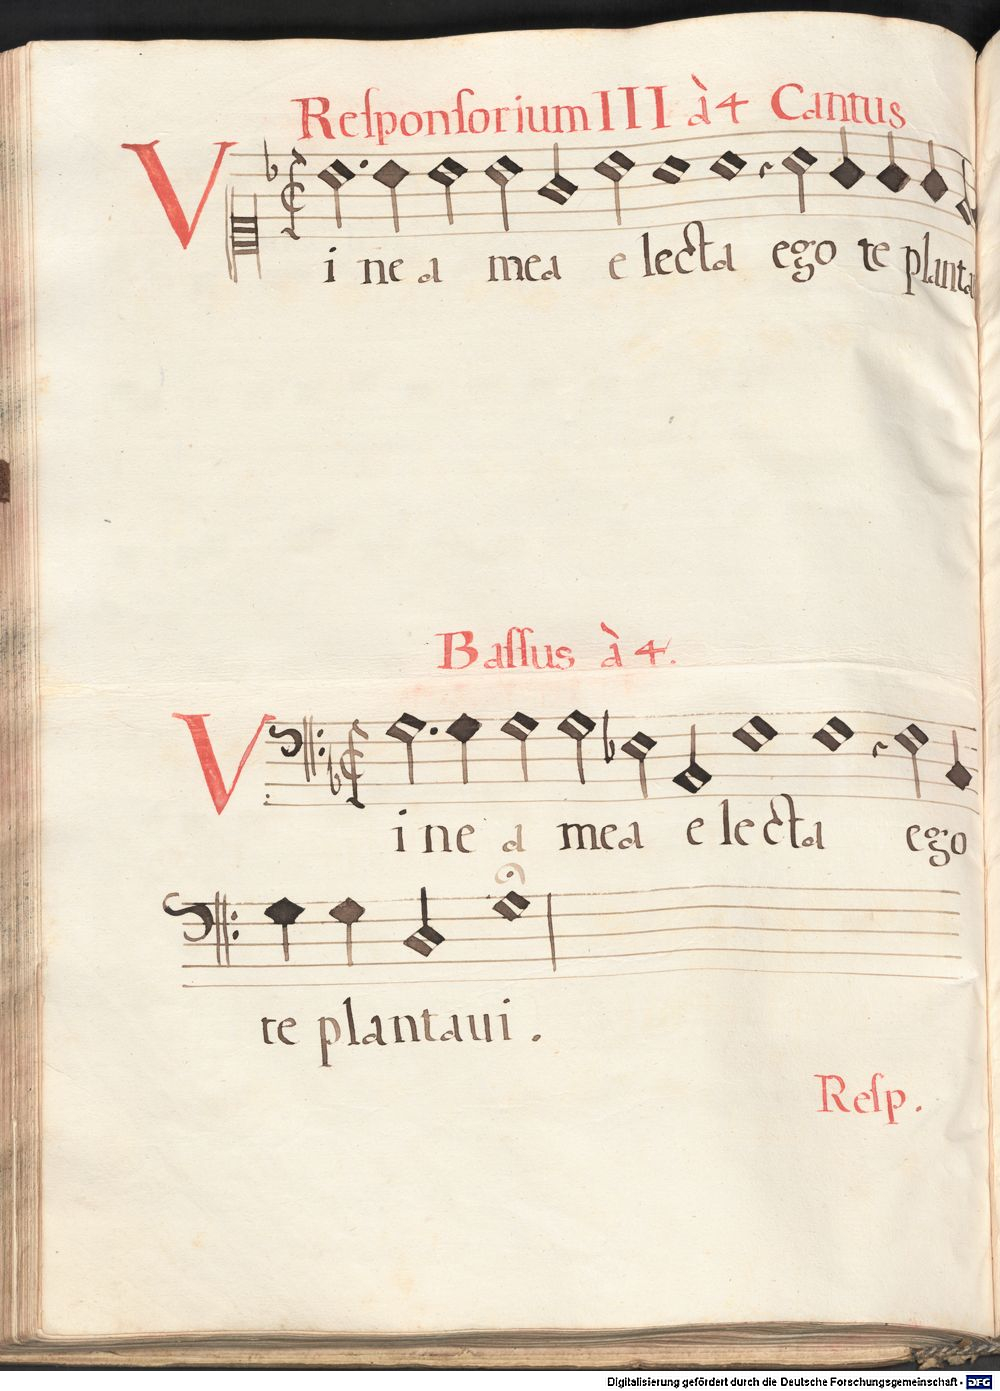 Reſponſorium III à 4 Cantus
Vinea mea electa ego te planta
Baſſus à 4.
Vinea mea electa ego
te plantaui.
Reſp.
Digitalisierung gefördert durch die Deutsche Forschungsgemeinschaft - DFG